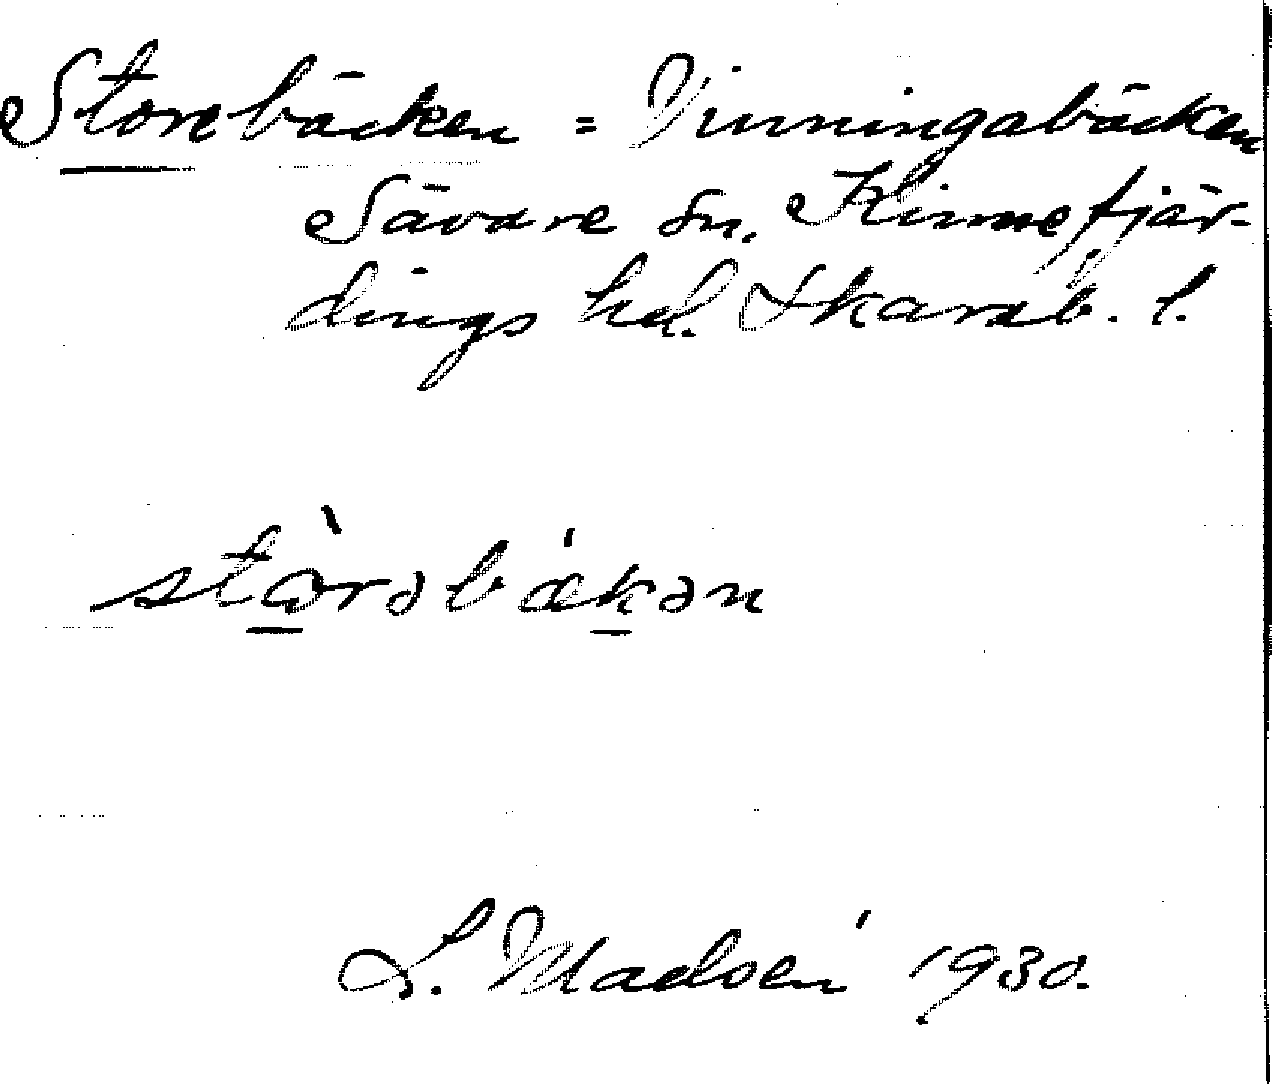 Storebäcken = Vinningabäcken
Sävare sn. Kinnefjär-
dings hd. Skarab. l.
stòrəbäkən
L. Madsén 1930.